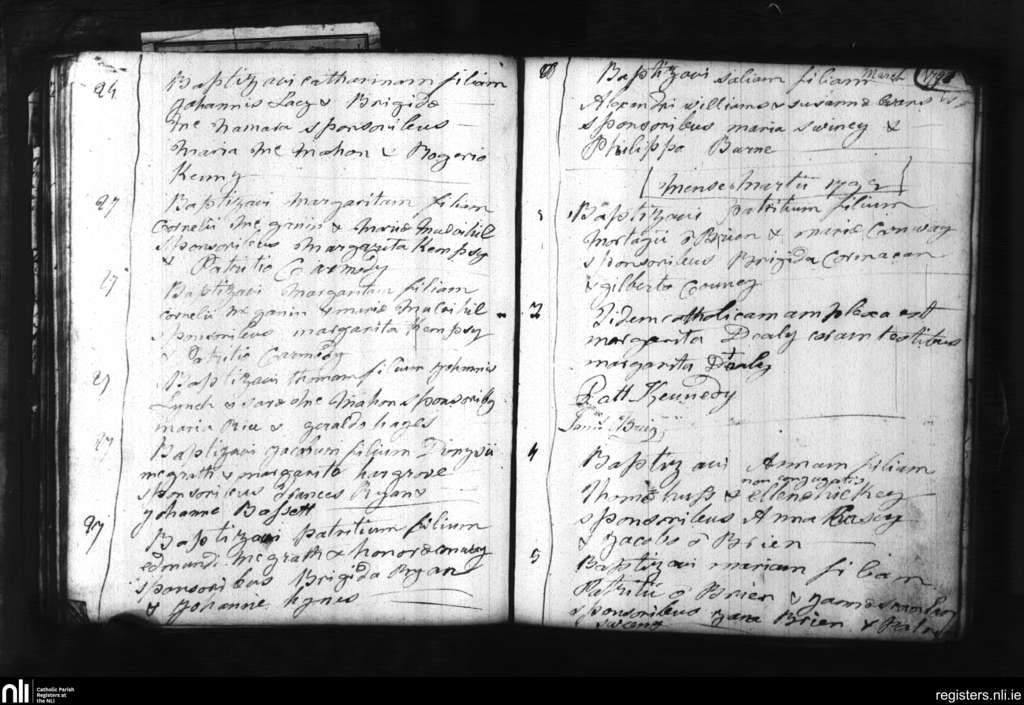 24 Baptizavi Catharinam filiam
Johannis Lacy & Brigidæ
Mc Namara sponsoribus
Maria Mc Mahon & Rogerio
Kenny
27 Baptizavi Margaritam filiam
Cornelii Mc & Mariæ
sponsoribus Margarita Kempsy
& Patritio Carmody
27 Baptizavi Margaritam filiam
Cornelii Mc & Mariæ
sponsoribus margarita Kempsy
& Patritio Carmody
27 Baptizavi filium Johannis
Lynch & Saræ Mc Mahon sponsoribs
maria Rice & geraldo hayes
27 Baptizavi Jacobum filium Dionysii
mcgrath & margarita hargrove
sponsoribus Frances Ryan &
Johanne Bassett
27 Baptizavi patritium filium
edmundi Mcgrath & honoræ
sponsoribus Brigida Ryan
& Johanne hynes
28 Baptizavi saliam filiam March 1792
Alexandri williams & susannæ Evans
sponsoribus maria swiney &
Philippo Burne
Mense Martii 1792
Baptizavi patritium filium
Mortagii ô Brien & mariæ Conway
sponsoribus Brigida Cormacan
& gilberto
2 Fidem catholicam amplexa est
margarita Dealy coram testibus
margarita Dealy
Patt Kennedy
4 Baptizavi Annam filiam
non conjugatis
Thomæ huss & ellenæ hickey
sponsoribus Anna Casey
& Jacobo ô Brien
5 Baptizavi mariam filiam
Patritii ô Brien &
sponsoribus Jana Brien &
sweeny
nli
Catholic Parish
Registers at
the NLI
registers.nli.ie